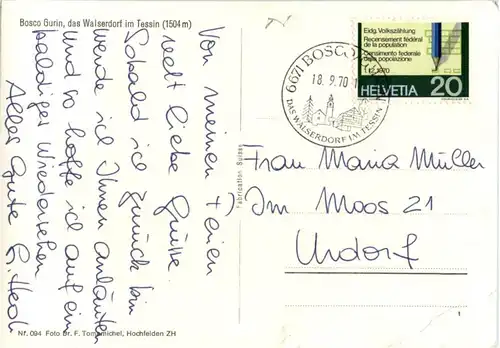 Bosco Gurin, das Walserdorf im Tessin (1504 m)
Von meinen Ferien
recht liebe Grüsse.
Sobald ich zurück bin
werde ich Ihnen anläuten
und so hoffe ich auf ein
baldiges Wiedersehen
Alles Gute
Fabrication Suisse
Nr. 094 Foto Dr. F. Tommichel, Hochfelden ZH
6671 BOSCO GURIN
18.9.70
DAS WALSERDORF IM TESSIN
Eidg. Volkszählung
Recensement fédéral
de la population
Censimento federale
della popolazione
1.12.1970
HELVETIA 20
Frau Maria Müller
Im Moos 21
Urdorf
1